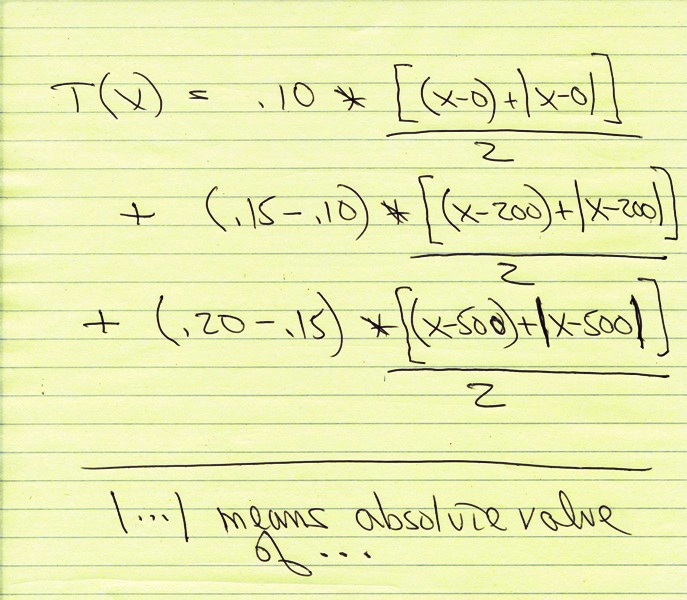 T(x) = .10 * [(x-0)+|x-0|]
2
+ (.15-.10) * [(x-200)+|x-200|]
2
+ (.20-.15) * [(x-500)+|x-500|]
2
|...| means absolute value
of ...